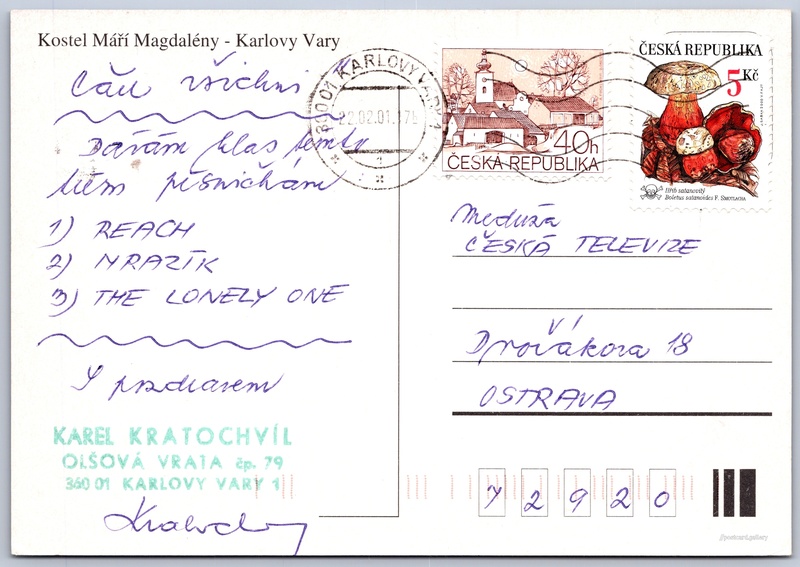 Kostel Máří Magdalény - Karlovy Vary
Čau všichni
Dávám hlas těmto
třem písničkám
1) REACH
2) MRAZÍK
3) THE LONELY ONE
S pozdravem
KAREL KRATOCHVÍL
OLŠOVÁ VRATA čp. 79
360 01 KARLOVY VARY 1
360 01 KARLOVY VARY 1
22.02.01
40h
ČESKÁ REPUBLIKA
ČESKÁ REPUBLIKA
5 Kč
Hřib satanovitý
Boletus satanoides F. SMOTLACHA
Meduza
ČESKÁ TELEVIZE
Dvořákova 18
OSTRAVA
72920
postcard.gallery